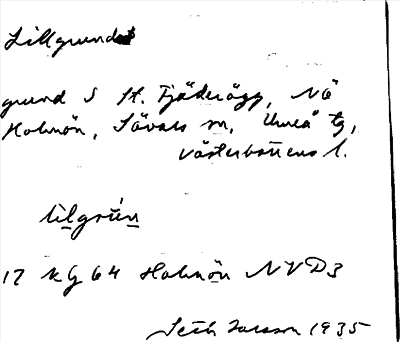 Lillgrundet
grund S St. Fjäderägg, NÖ
Holmön, Sävars sn, Umeå tg,
Västerbottens l.
lilgrún
17 KG 64 Holmön NV D3
Seth Larsson 1935